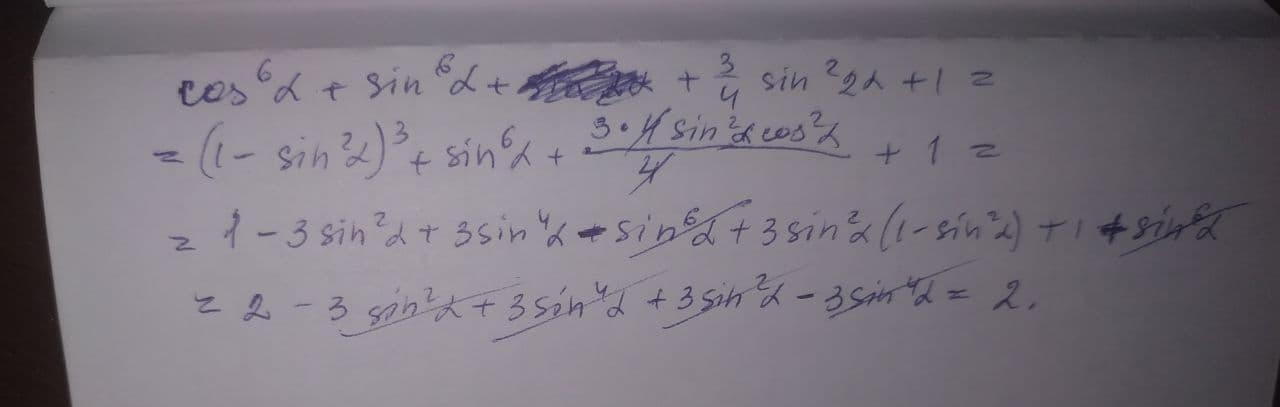 cos⁶α + sin⁶α + + 3/4 sin²2α + 1 =
= (1 - sin²α)³ + sin⁶α + 3·4 sin²α cos²α / 4 + 1 =
= 1 - 3 sin²α + 3 sin⁴α - sin⁶α + 3 sin²α (1 - sin²α) + 1 + sin⁶α
= 2 - 3 sin²α + 3 sin⁴α + 3 sin²α - 3 sin⁴α = 2.